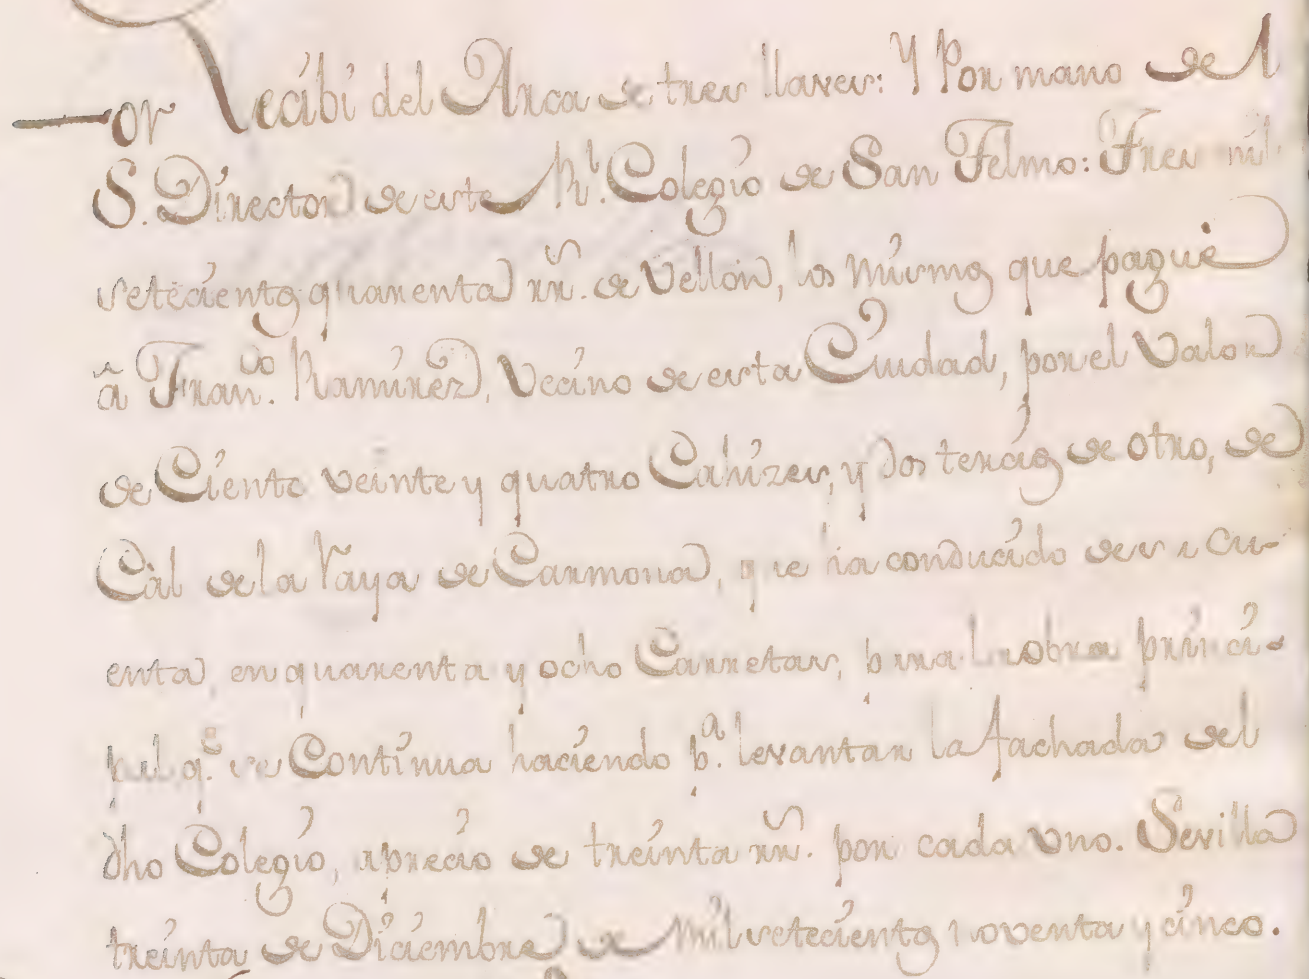 Recibi del Arca de tres llaves: Y Por mano del
S. Director de este Rl. Colegio de San Telmo: Tres mil
setecientos quarenta rrs. de Vellon, los mismos que paguè
â Franco. Ramirez, Vecino de esta Ciudad, por el Valor
de Ciento veinte y quatro Cahizes, y dos tercios de otro, de
Càl de la Raya de Carmona, que ha conducido de su cu-
enta, en quarenta y ocho Carretas, para la obra princi-
pal qe. se Continua haciendo pa. levantar la fachada del
dho Colegio, a precio de treinta rrs. por cada uno. Sevilla
treinta de Diciembre de Mil setecientos noventa y cinco.